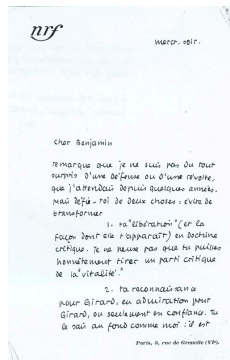 nrf
mercr. soir.
Cher Benjamin
remarque que je ne suis pas du tout
surpris d'une défense ou d'une révolte,
que j'attendais depuis quelques années.
Mais défie-toi de deux choses : évite de
transformer
1- ta "libération" (et la
façon dont elle t'apparaît) en doctrine
critique. Je ne pense pas que tu puisses
honnêtement tirer un parti critique
de la "vitalité."
2. ta reconnaissance
pour Girard, en admiration pour
Girard, ou seulement en confiance. Tu
le sais au fond comme moi : il est
Paris, 3, rue de Grenelle (VIe).